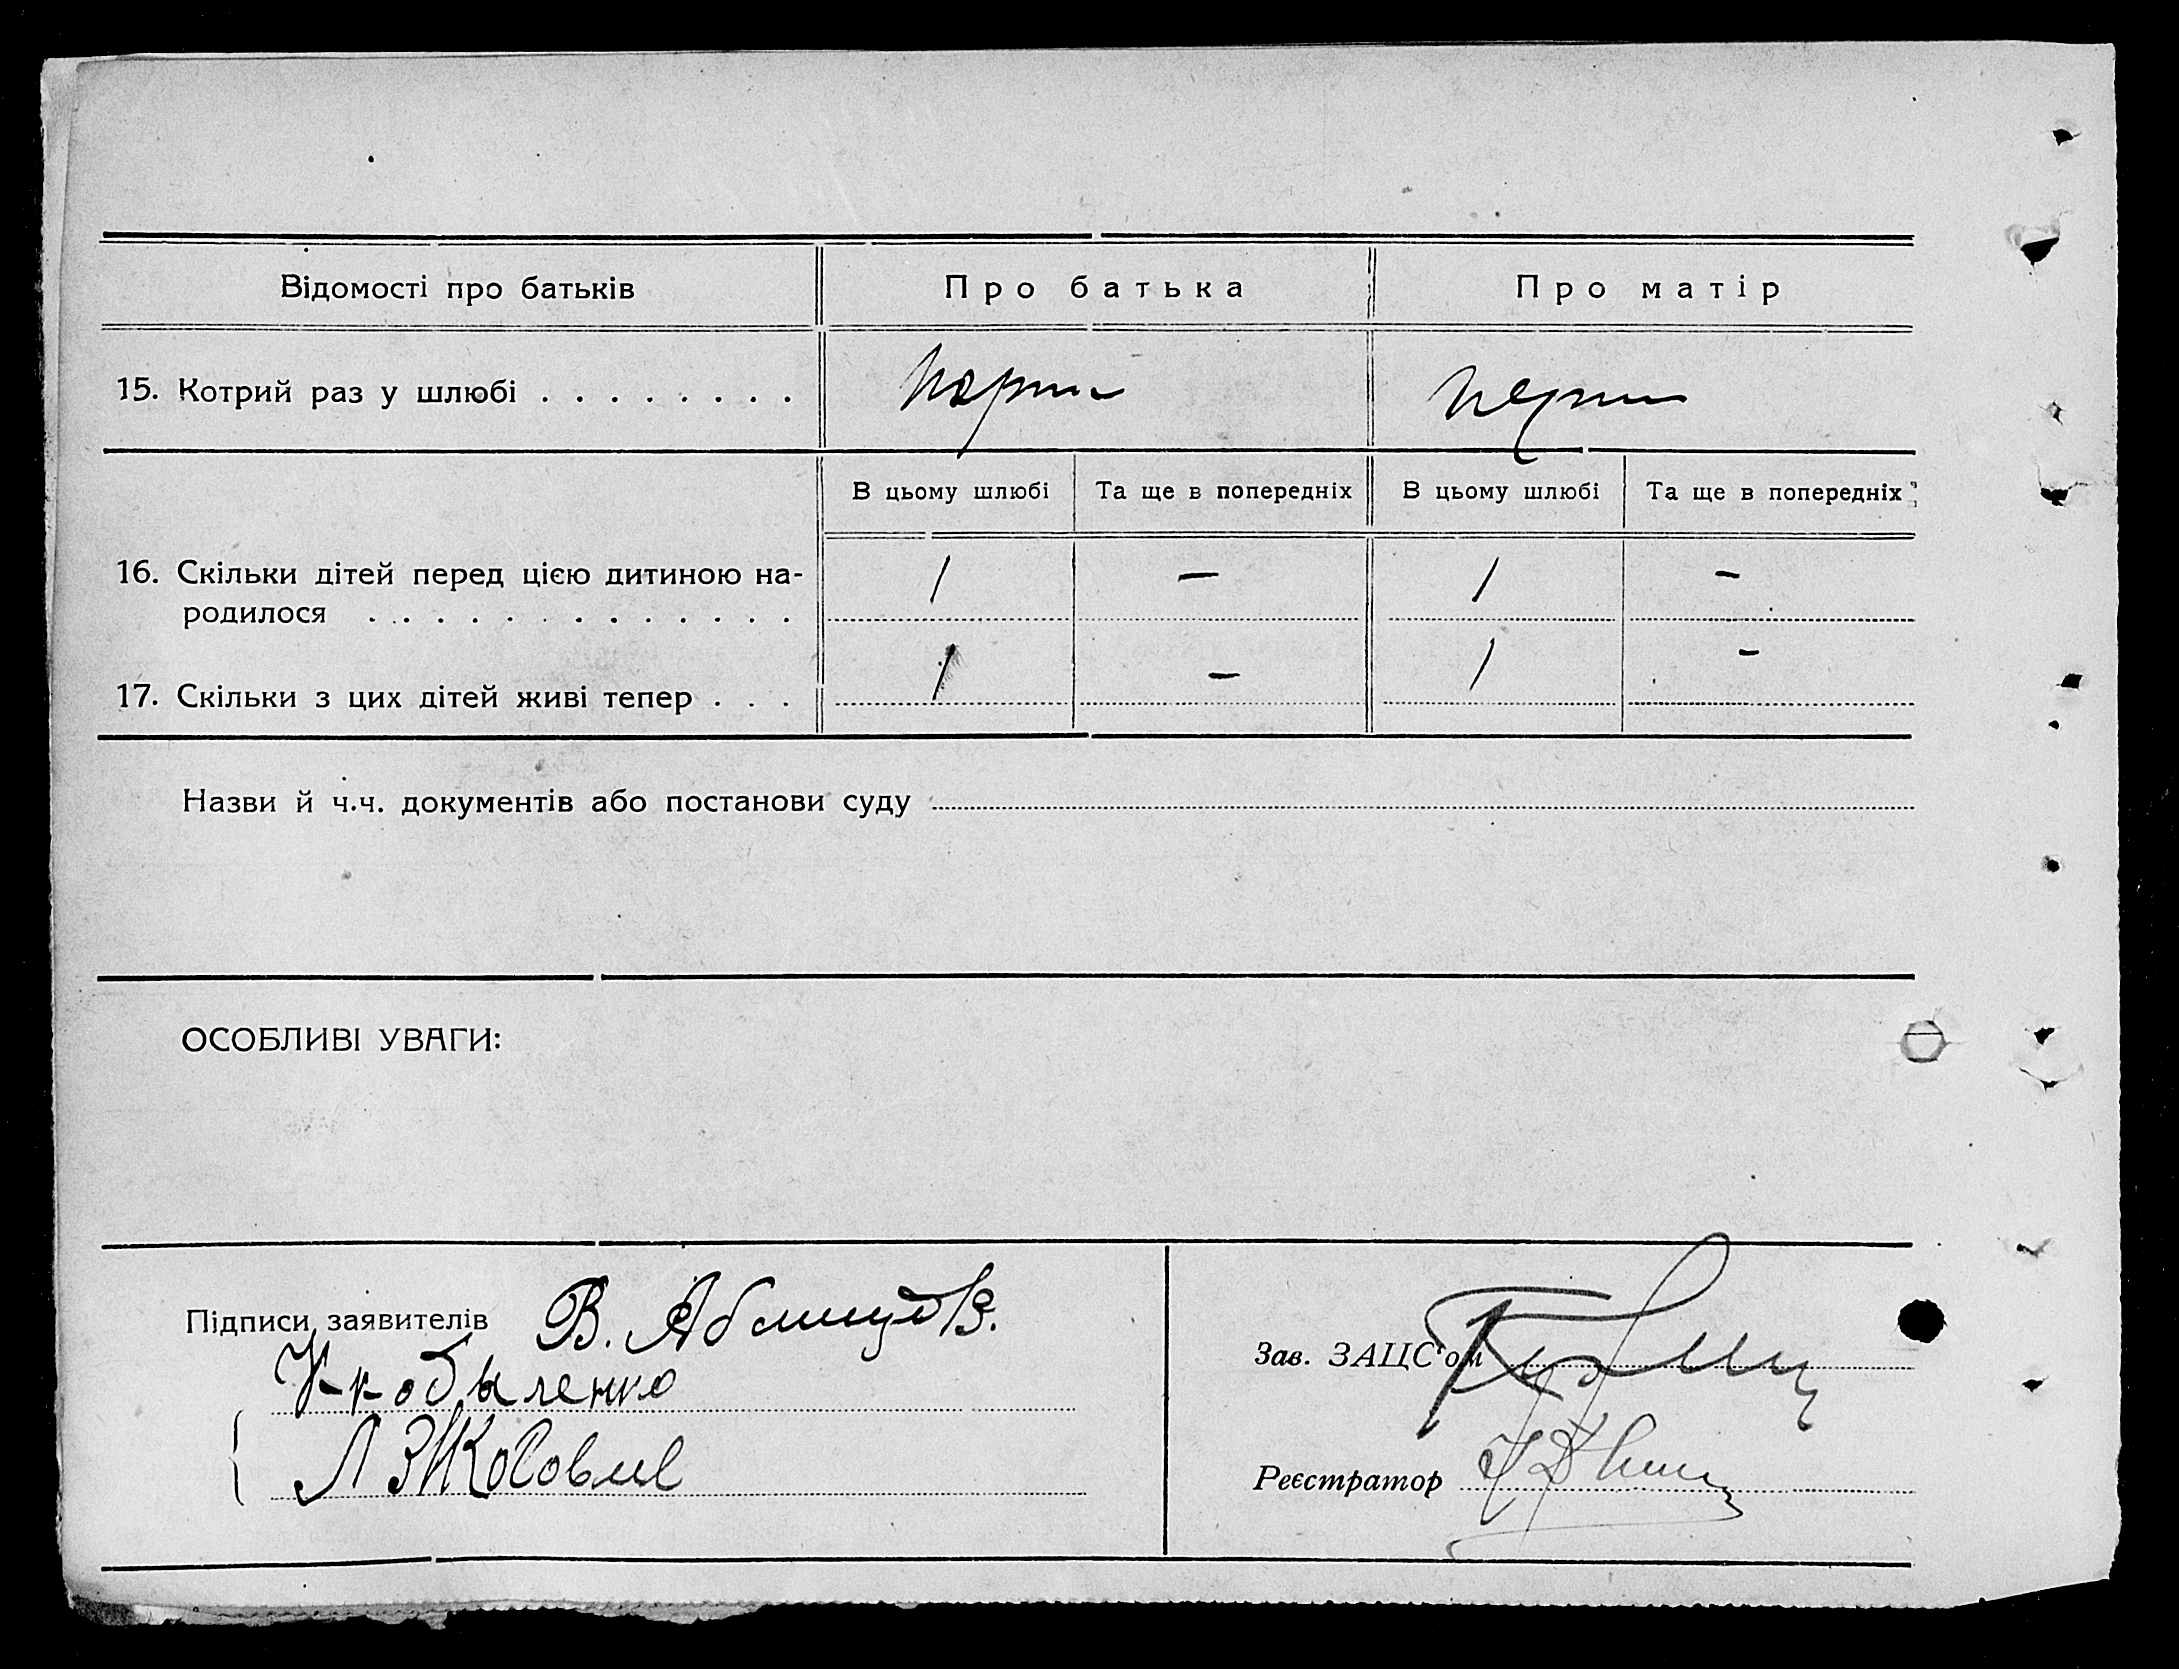 Відомості про батьків
Про батька
Про матір
15. Котрий раз у шлюбі . . . . . . . .
В цьому шлюбі
Та ще в попередніх
В цьому шлюбі
Та ще в попередніх
16. Скільки дітей перед цією дитиною на-
родилося . . . . . . . . . . . . .
1 — 1 -
17. Скільки з цих дітей живі тепер . . .
1 — 1 -
Назви й ч.ч. документів або постанови суду
ОСОБЛИВІ УВАГИ:
Підписи заявителів В.
Зав. ЗАЦС'ом
Реєстратор